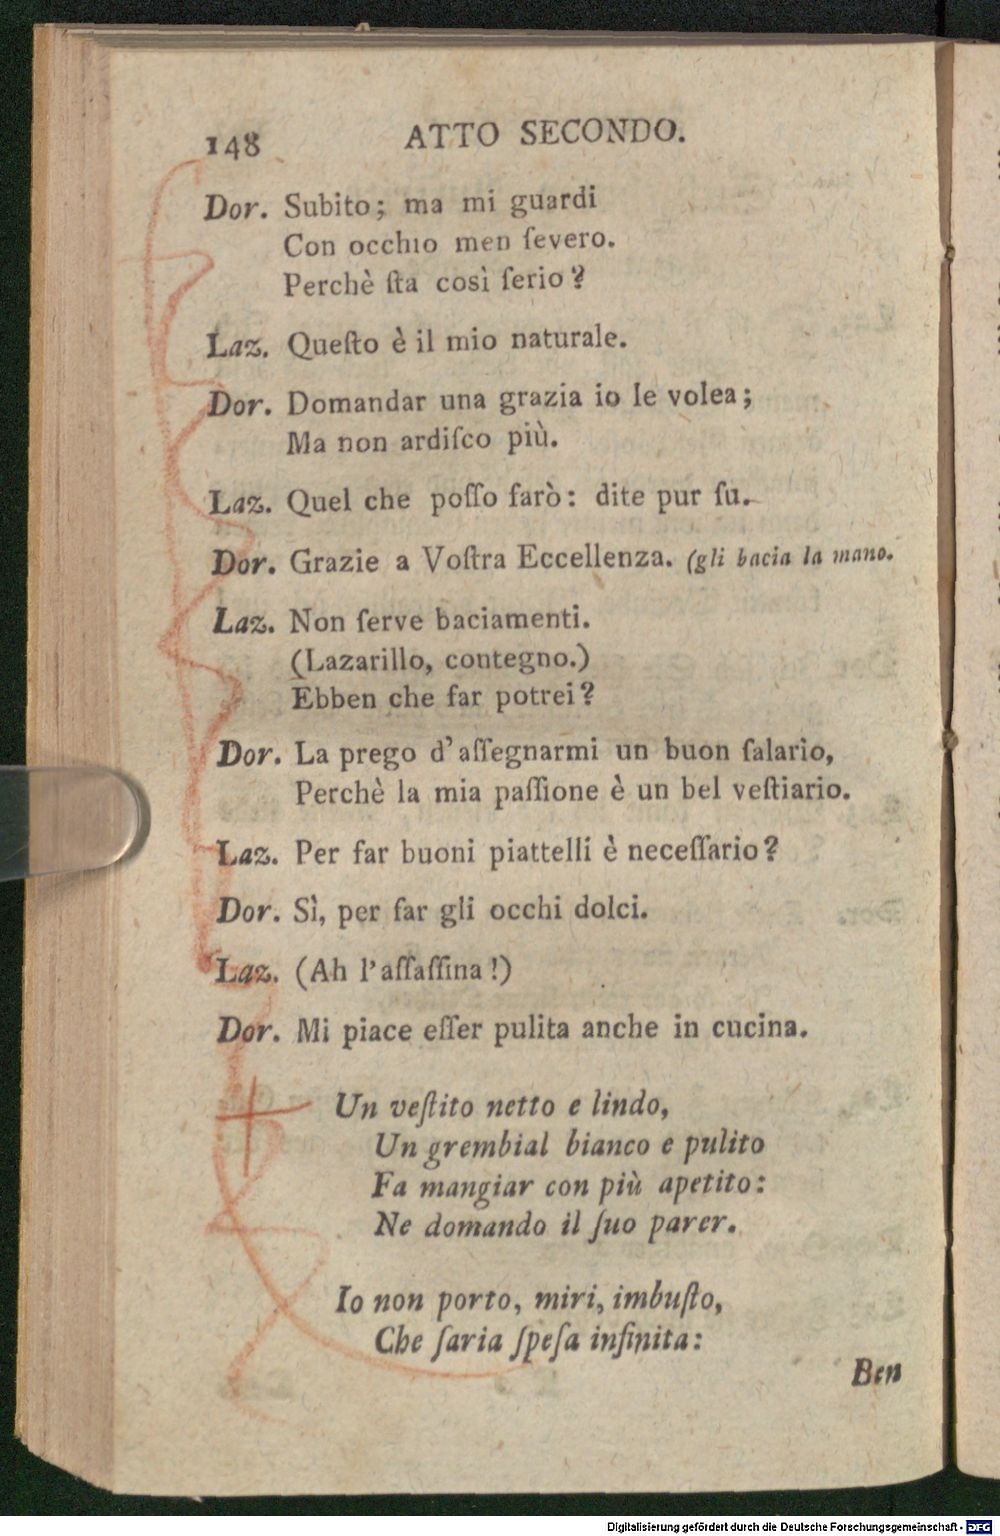 148 ATTO SECONDO.
Dor. Subito; ma mi guardi
Con occhio men ſevero.
Perchè ſta così ſerio?
Laz. Queſto è il mio naturale.
Dor. Domandar una grazia io le volea;
Ma non ardiſco più.
Laz. Quel che poſſo farò: dite pur ſu.
Dor. Grazie a Voſtra Eccellenza. (gli bacia la mano.
Laz. Non ſerve baciamenti.
(Lazarillo, contegno.)
Ebben che far potrei?
Dor. La prego d'aſſegnarmi un buon ſalario,
Perchè la mia paſſione è un bel veſtiario.
Laz. Per far buoni piattelli è neceſſario?
Dor. Sì, per far gli occhi dolci.
Laz. (Ah l'aſſaſſina!)
Dor. Mi piace eſſer pulita anche in cucina.
Un veſtito netto e lindo,
Un grembial bianco e pulito
Fa mangiar con più apetito:
Ne domando il ſuo parer.
Io non porto, miri, imbuſto,
Che ſaria ſpeſa infinita:
Ben
Digitalisierung gefördert durch die Deutsche Forschungsgemeinschaft - DFG